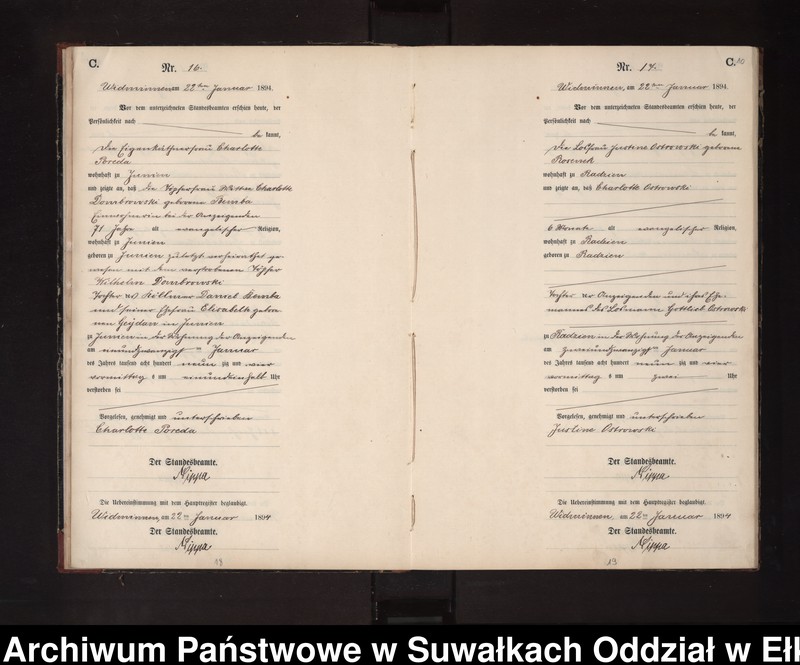 C.
Nr. 16.
Widminnen am 22ten Januar 1894.
Vor dem unterzeichneten Standesbeamten erschien heute, der
Persönlichkeit nach
be kannt,
die Eigenkäthnerfrau Charlotte
Poreda
wohnhaft zu Junien
und zeigte an, daß die Töpferfrau Wittwe Charlotte
Dombrowski geborene
Einwohnerin bei der Anzeigenden
71 Jahre alt evangelischer Religion,
wohnhaft zu Junien
geboren zu Junien zuletzt verheirathet ge-
wesen mit dem verstorbenen Töpfer
Wilhelm Dombrowski
Tochter des Daniel
und seiner Ehefrau Elisabeth gebor
nen Geydan in Junien
zu Junien in der Wohnung der Anzeigenden
am ten Januar
des Jahres tausend acht hundert neun zig und vier
vormittag s um halb Uhr
verstorben sei
Vorgelesen, genehmigt und unterschrieben
Charlotte Poreda
Der Standesbeamte.
Nippa
Die Uebereinstimmung mit dem Hauptregister beglaubigt.
Widminnen, am 22ten Januar 1894
Der Standesbeamte.
Nippa
C.
Nr. 17.
Widminnen, am 22ten Januar 1894.
Vor dem unterzeichneten Standesbeamten erschien heute, der
Persönlichkeit nach
be kannt,
die Losfrau Justine Ostrowski geborene
wohnhaft zu Radzien
und zeigte an, daß Charlotte Ostrowski
6 Monate alt evangelischer Religion,
wohnhaft zu Radzien
geboren zu Radzien
Tochter der Anzeigenden und ihres Ehe
mannes des Losmann Gottlieb Ostrowski
zu Radzien in der Wohnung der Anzeigenden
am zweiundzwanzigsten Januar
des Jahres tausend acht hundert neun zig und vier
vormittag s um zwei Uhr
verstorben sei
Vorgelesen, genehmigt und unterschrieben
Justine Ostrowski
Der Standesbeamte.
Nippa
Die Uebereinstimmung mit dem Hauptregister beglaubigt.
Widminnen, am 22ten Januar 1894
Der Standesbeamte.
Nippa
13
Archiwum Państwowe w Suwałkach Oddział w Eł